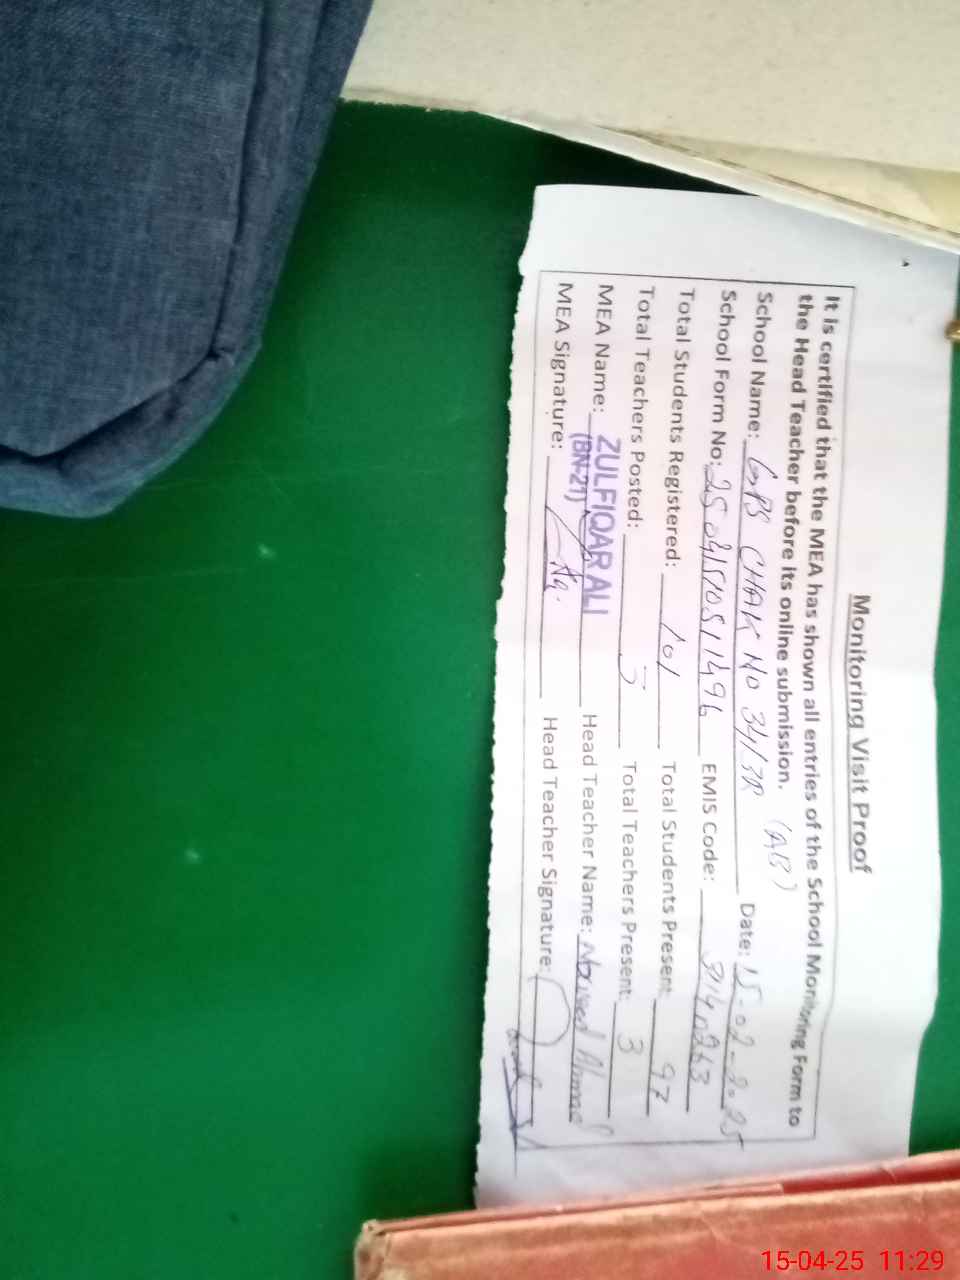 Monitoring Visit Proof
It is certified that the MEA has shown all entries of the School Monitoring Form to
the Head Teacher before its online submission. (AB)
School Name: GPS CHAK NO 34/3R Date: 15-02-2025
School Form No: EMIS Code:
Total Students Registered: 101 Total Students Present: 97
Total Teachers Posted: 3 Total Teachers Present: 3
MEA Name: ZULFIQAR ALI Head Teacher Name: Ahmed
(BN-21)
MEA Signature: Head Teacher Signature:
15-04-25 11:29